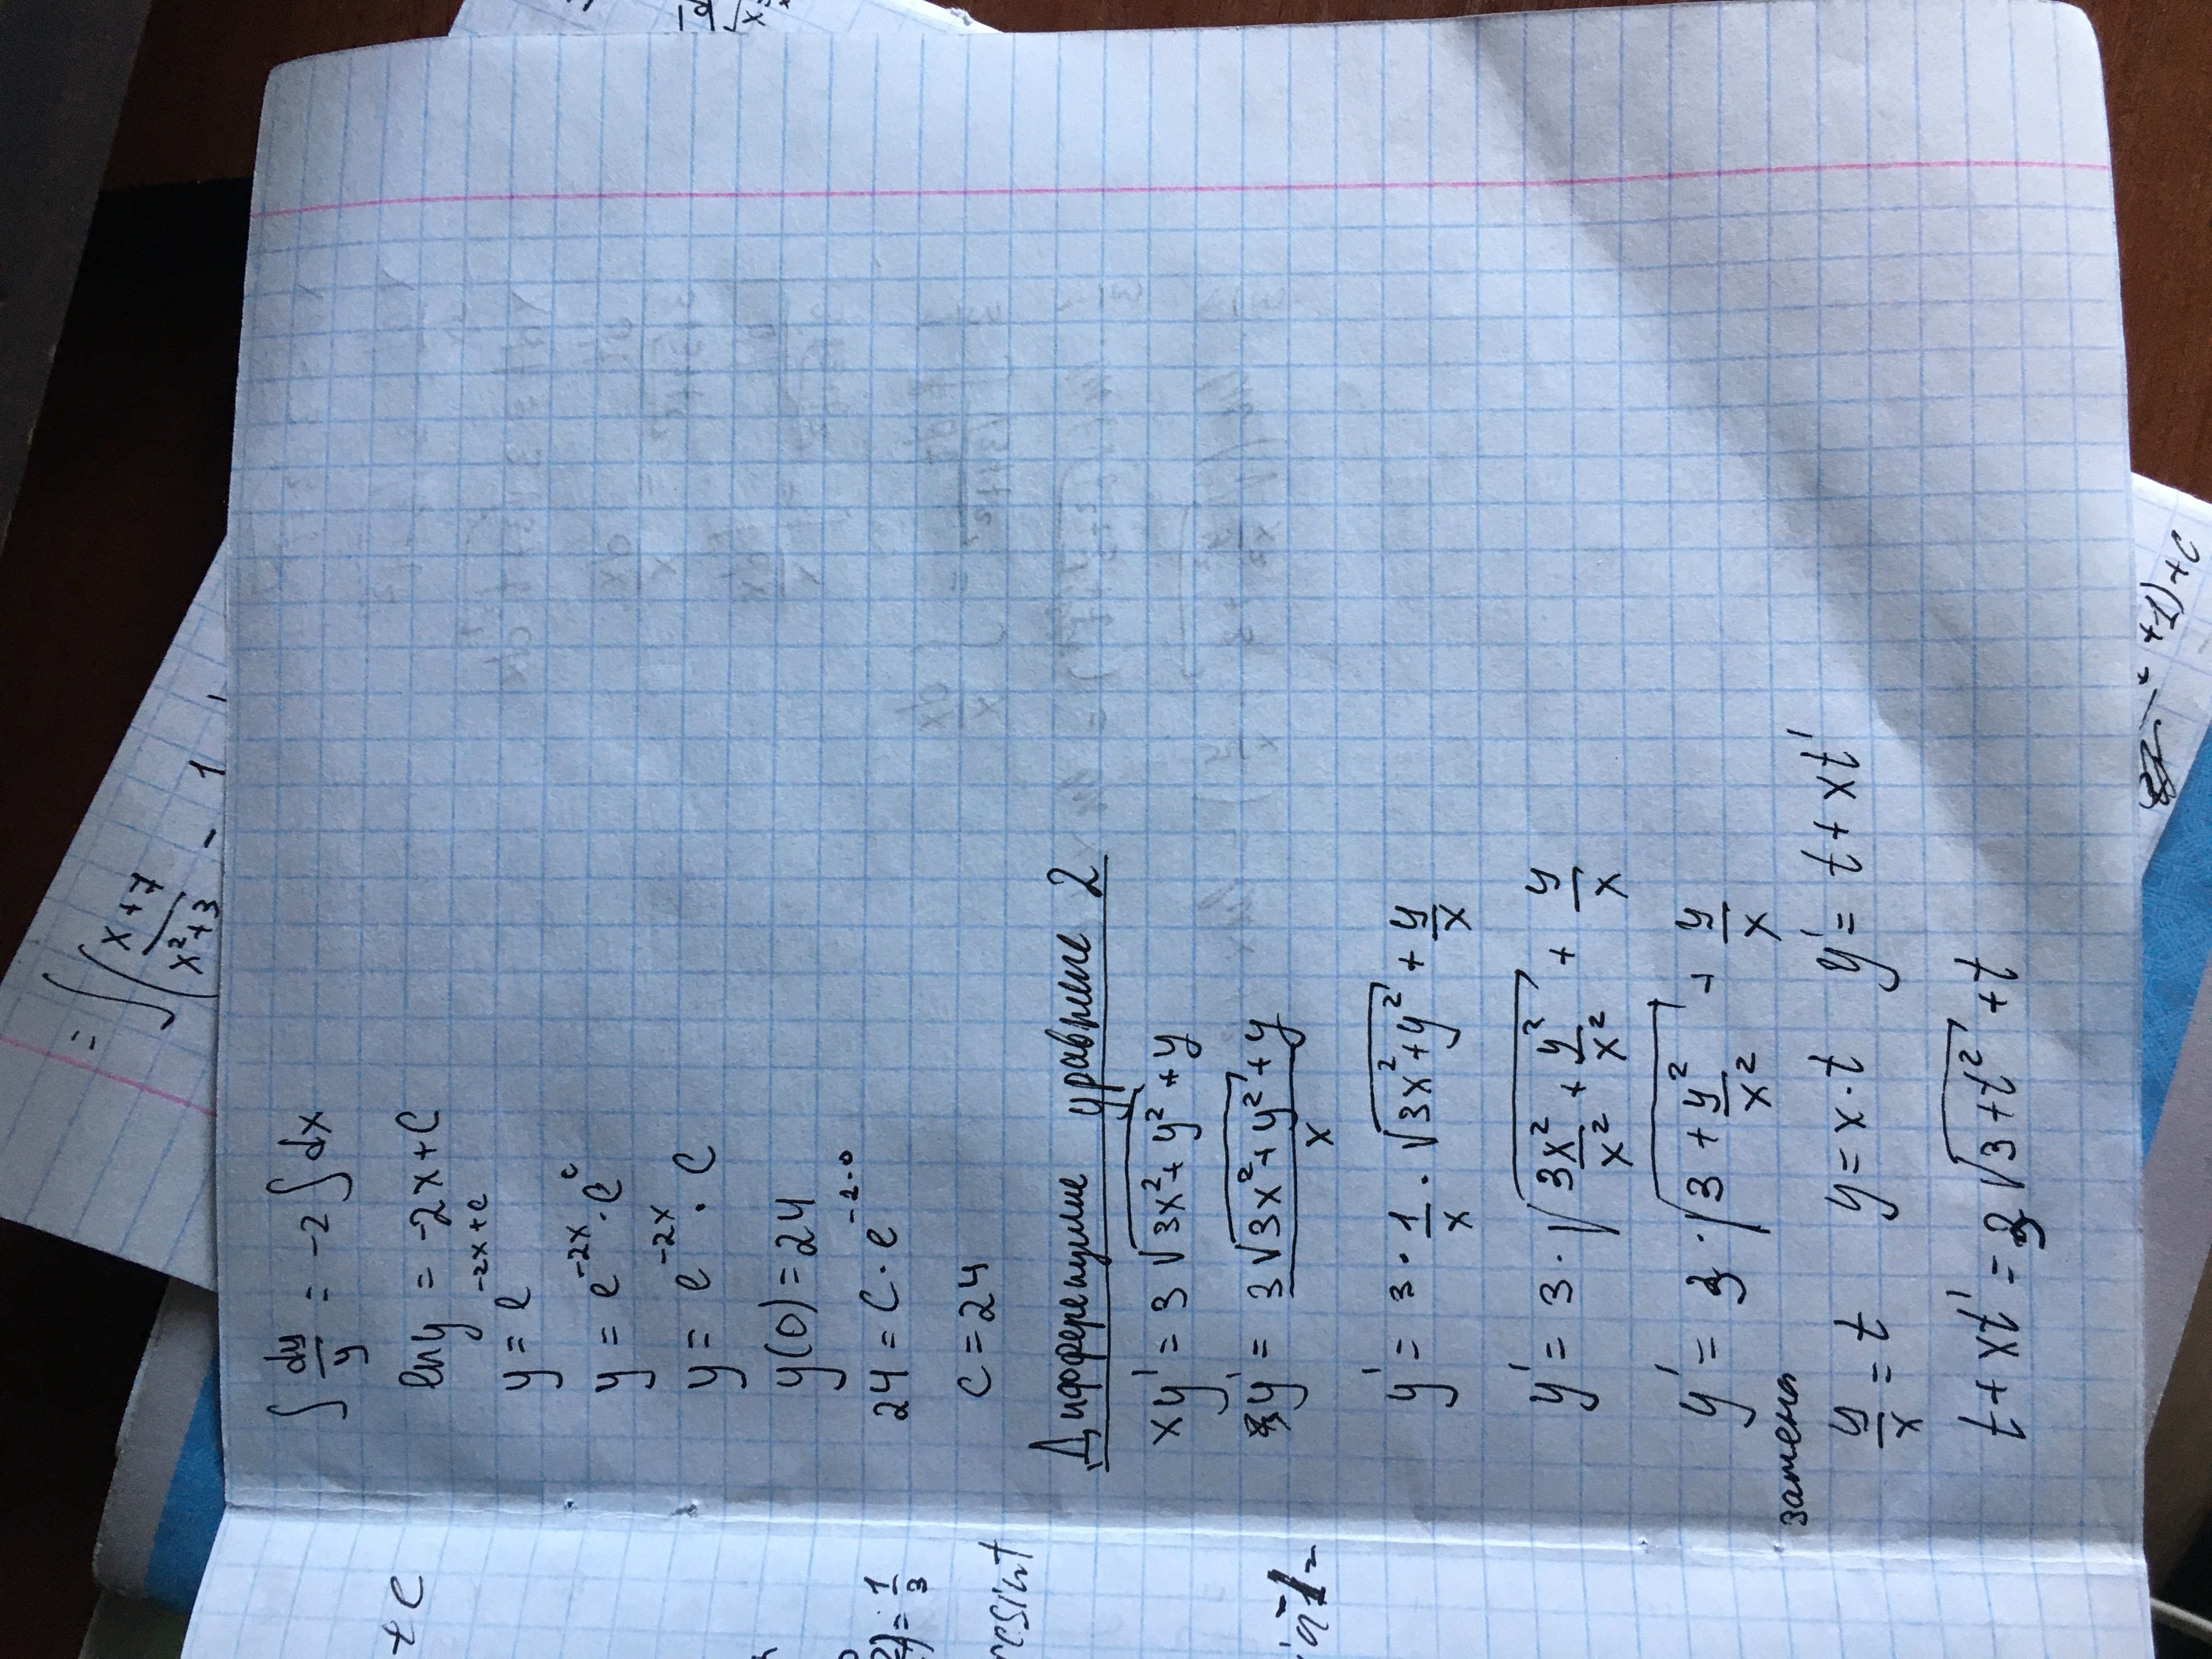 = ∫(x+7/x²+3 - 1
+c
∫ dy/y = -2 ∫ dx
ln y = -2x+C
y = e^(-2x+c)
y = e^(-2x) · e^c
y = e^(-2x) · C
y(0) = 24
24 = C · e^(-2·0)
= 1/3
C = 24
resint
Дифференцие уравнение 2
xy' = 3 √(3x²+y²) + y
y' = (3√(3x²+y²) + y)/x
y' = 3 · 1/x · √(3x²+y²) + y/x
y' = 3 · √(3x²/x² + y²/x²) + y/x
y' = 3 · √(3 + y²/x²) + y/x
замена
y/x = t y = x·t y' = t + xt'
t + xt' = 3 √(3+t²) + t
+1)+c